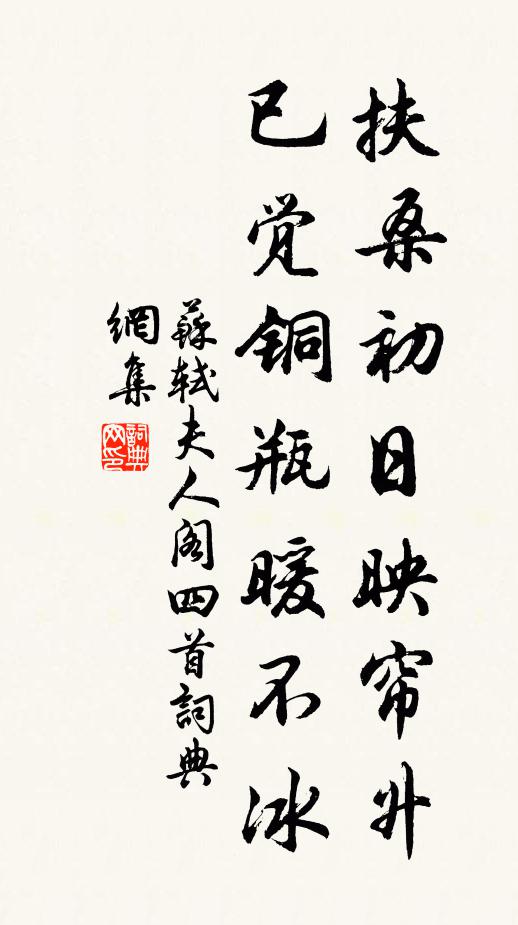 扶桑初日映帘升
已觉铜瓶暖不冰
蘇軾夫人阁四首詞典
網集
詞典
网印